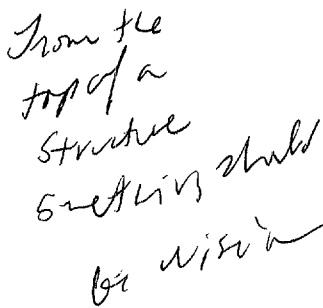 From the
top of a
structure
something should
be visi